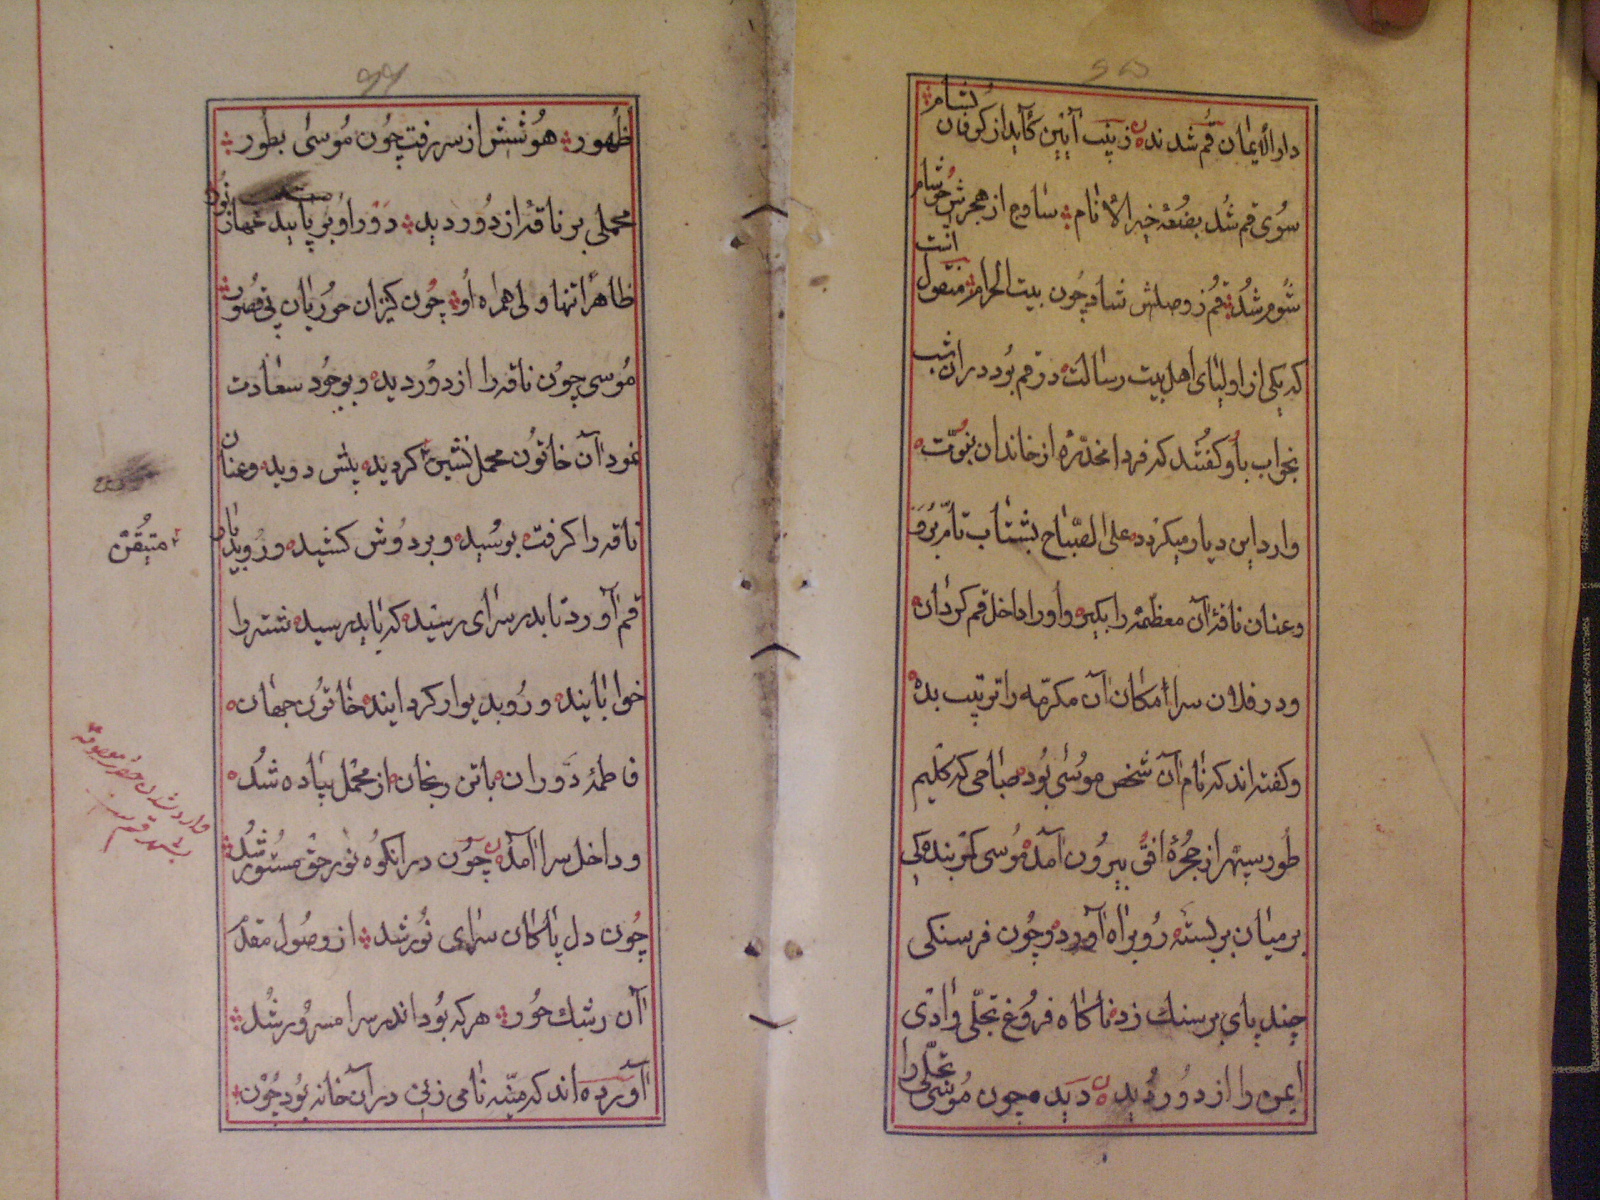 دارالأیمان قم شدند زینب آیین کآید از کوفان بشام
سوی قم شد بضعهٔ خیر الأنام ساوه از هجرش چو شام
شوم شد قم ز وصلش شاد چون بیت الحرام منقول است
که یکی از اولیای اهل بیت رسالت در قم بود در ان شب
بخواب باو کفتند که فردا مخدّرهٔ از خاندان نبوّت
وارد این دیار میکردد علی الصّباح بشتاب تامّ برو
وعنان ناقهٔ آن معظّمه را بکیر و اورا داخل قم کردان
و در فلان سرا مکان آن مکرّمه را ترتیب بده
و کفته اند که نام آن شخص موسی بود صباحی که کلیم
طور سپهر از حجرهٔ افق بیرون آمد موسی کمر بندکی
بر میان بر بسته رو براه آورد و چون فرسنکی
چند پای بر سنك زد ناکاه فروغ تجلّی وادی
ایمن را از دور دید دید چون موسی تجلّی را
ظهور هوشش از سر رفت چون موسی بطور
محملی بر ناقهٔ از دور دید دور او بر پا
ظاهراً تنها ولی همراه او چون کنیزان حوریان بی قصور
موسی چون ناقه را از دور دید و بوجود سعادت
نمود آن خاتون محمل نشین کردیده پیش دوید و عنان
ناقه را کرفت بوسید و بر دوش کشید و رو بدیار
قم آورد تا بدر سرای رسید که باید رسید شتر را
خوابانید و رو بدیوار کردانید خاتون جهان
فاطمهٔ دوران با تن رنجان از محمل پیاده شد
و داخل سرا آمد چون در انکوه نور حق مستور شد
چون دل پاکان سرای نور شد از وصول مقدم
آن رشك حور هر که بود اندر سرا مسرور شد
آورده اند که میّته نامی زنی در آن خانه بود چون
متیقّن